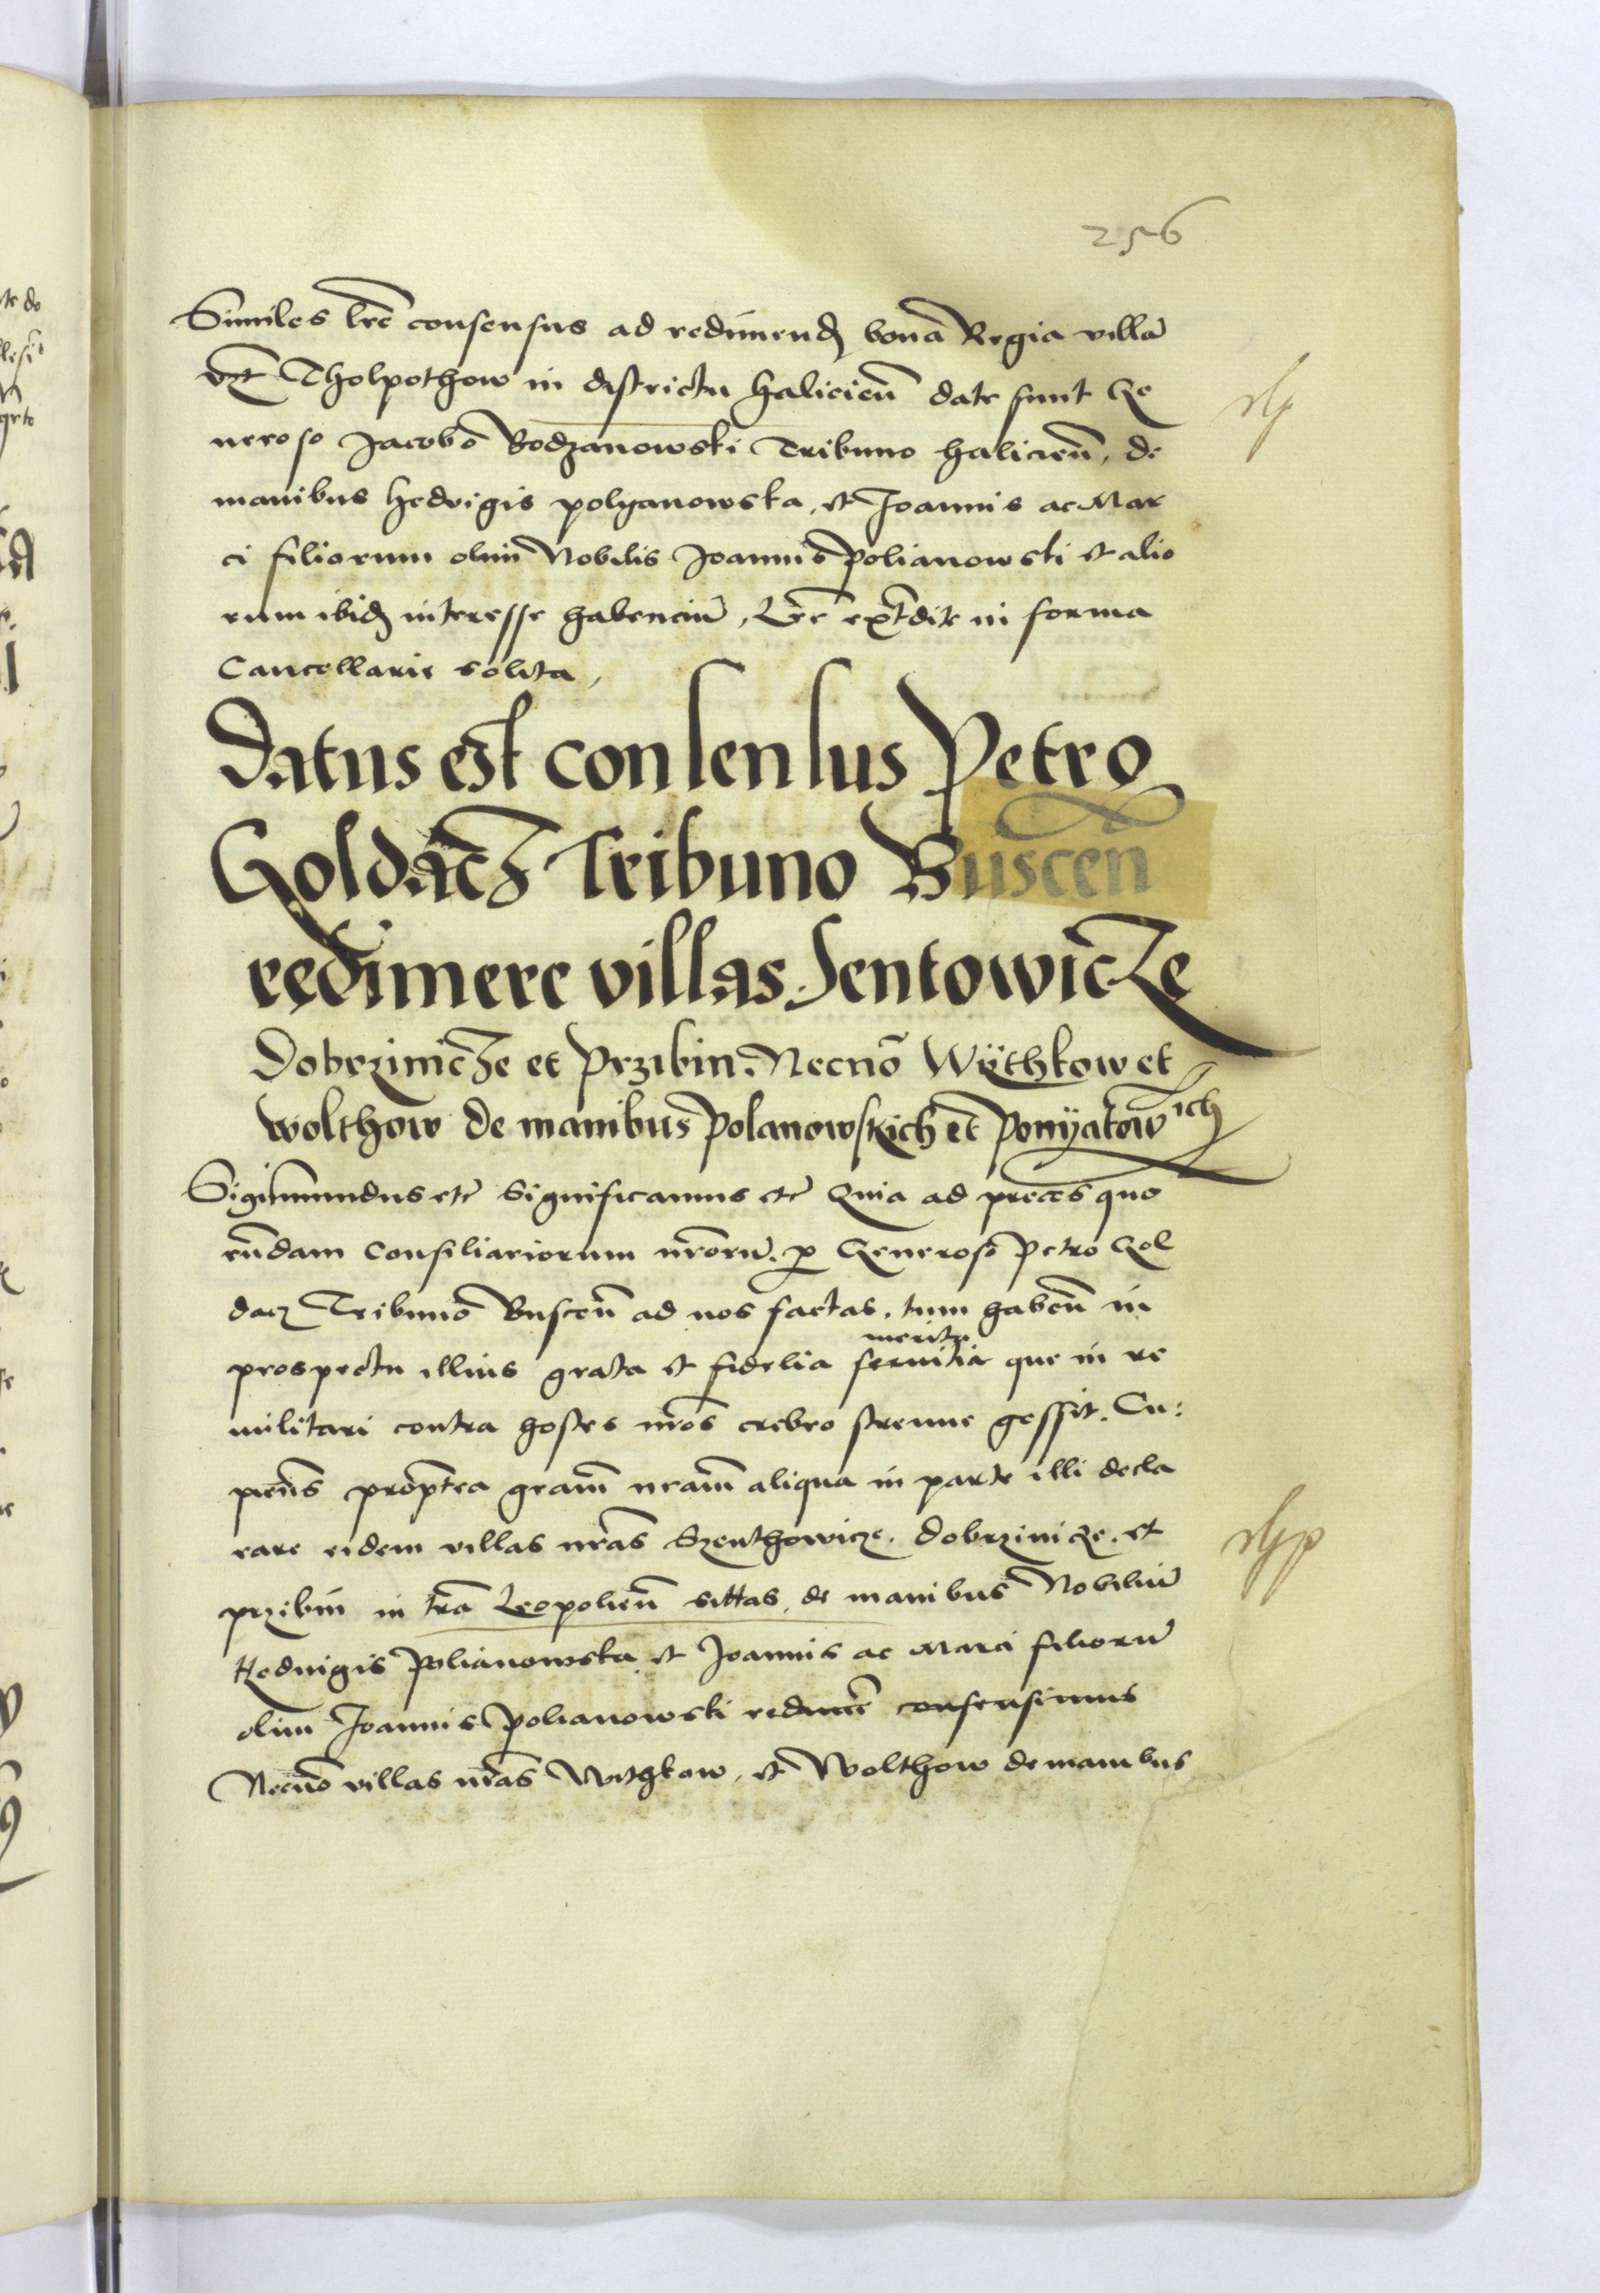 256
Similes lrē consensus ad redimend bona Regia villā
vꝫ Tholpothow in districtu halicieñ date sunt Ge
neroso Jacobo Bodzanowski Tribuno halicieñ, de
manibus hedvigis polyanowska, et Joannis ac Mar
ci filiorum olim Nobilis Joannis Polianowski et alio
rum ibid interesse habenciū, Lrē extꝛdite in forma
Cancellarie solita,
Datus est consensus Petro
Goldacz Tribuno Buscen̄
redimere villas Sentowicze
Dobrzinicze et Przibin. Necnō Wÿthkow et
wolthow de manibus Polanowskich et Ponÿatowich
Sigismundus etc̄ Significamus etc̄ Quia ad preces quo
rūdam Consiliariorum nrōrū. p Generoso Petro Gol
dacz Tribuno Busceñ ad nos factas. tum habeñ in
prospectu illius grata et fidelia seruitia merita que in re
militari contra hostes nrōs crebro strenue gessit. Cu:
pieñs propterea gram̄ nram̄ aliqua in parte illi decla
rare eidem villas nrās Szenthowicze. Dobrzinicze. et
przibin in trā Leopolieñ sittas, de manibus Nobiliū
Heduigis Polianowska et Joannis ac Marci filiorū
olim Joannis Polianowski redimere consensimus
Necnō villas nrās Witgkow, et Wolthow de manibus